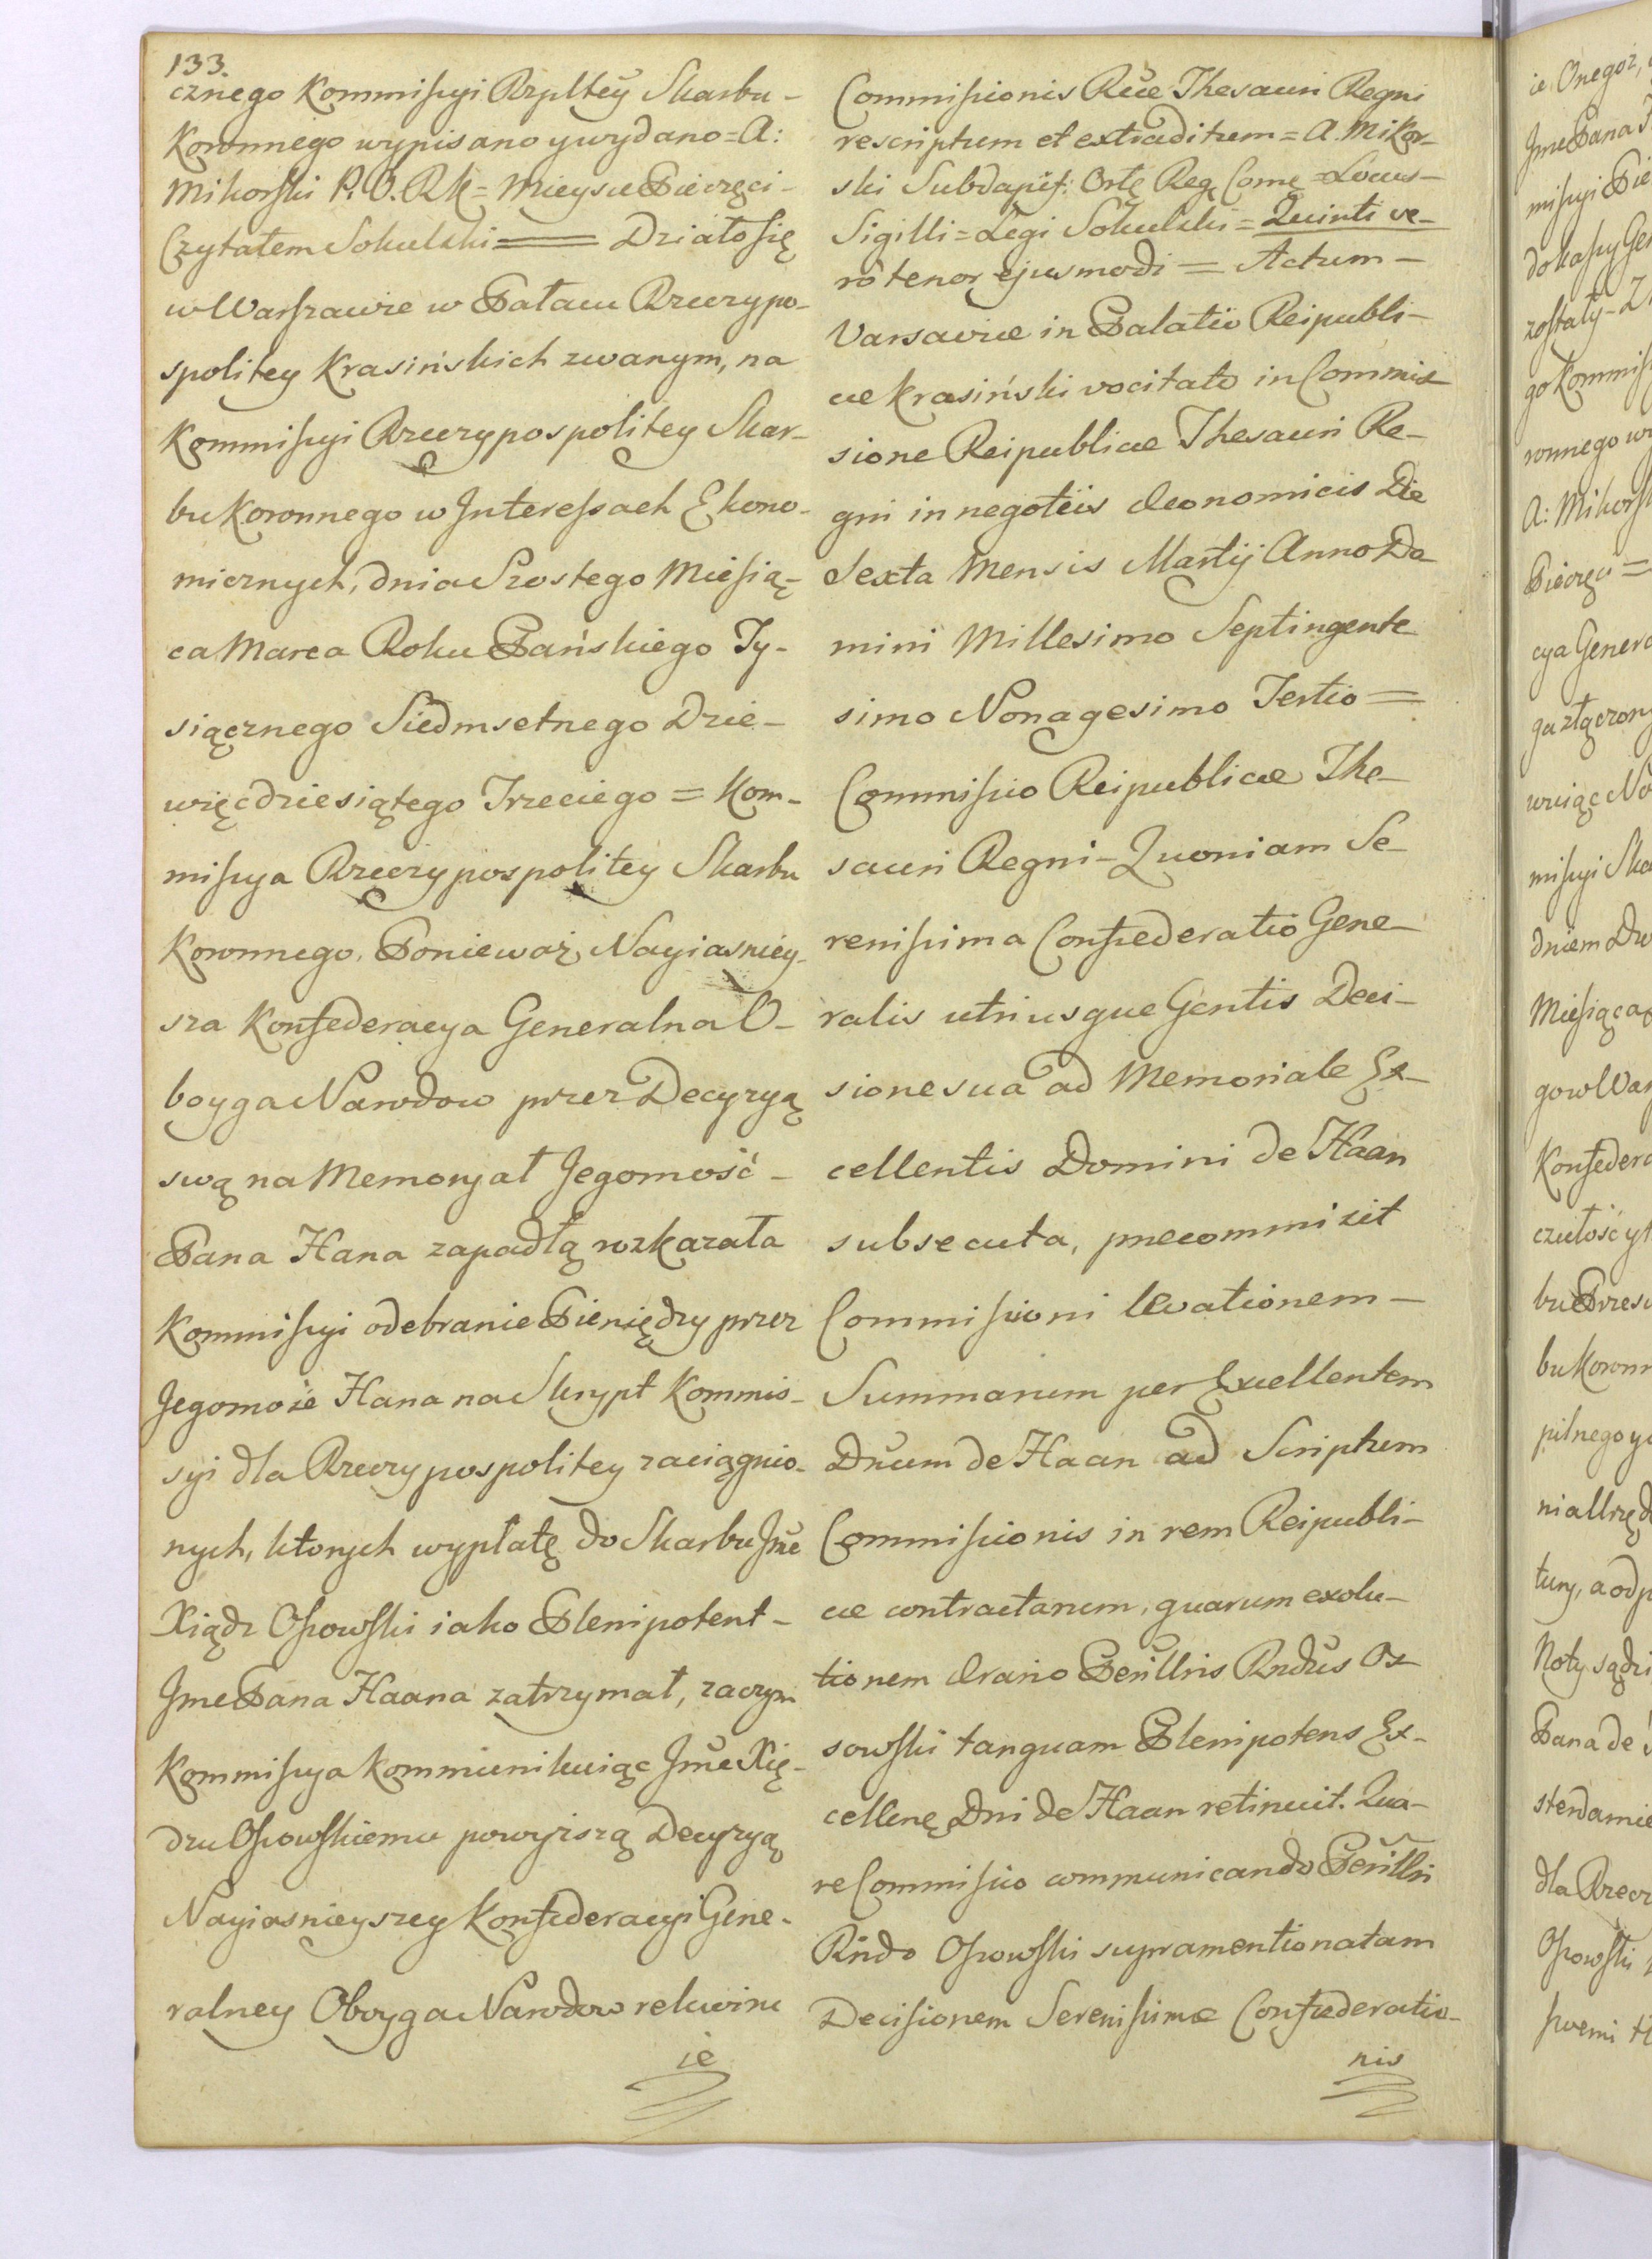 133.
cznego Kommissyi Rzpltey Skarbu-
Koronnego wypisano y wydano = A:
Mikorski P. O. Rk = Mieysce Pieczęci-
Czytałem Sokulski == Działo się
w Warszawie w Pałacu Rzeczypo-
spolitey Krasińskich zwanym, na
Kommissyi Rzeczypospolitey Skar-
bu Koronnego w Interessach Ekono-
micznych, dnia Szostego Miesią-
ca Marca Roku Pańskiego Ty-
siącznego Siedmsetnego Dzie-
więcdziesiątego Trzeciego = Kom-
missya Rzeczypospolitey Skarbu
Koronnego. Ponieważ Nayiasniey-
sza Konfederacya Generalna O-
boyga Narodow przez Decyzyą
swą na Memoryał Jegomość-
Pana Hana zapadłą rozkazała
Kommissyi odebranie Pieniędzy przez
Jegomośc Hana na Skrypt Kommis-
syi dla Rzeczypospolitey zaciągnio-
nych, ktorych wypłatę do Skarbu Jmc
Xiądz Ossowski iako Plenipotent-
Jmc Pana Haana zatrzymał, zaczym
Kommissya kommunikuiąc Jmc Xię-
dzu Ossowskiemu powyzszą Decyzyą
Nayiasnieyszey Konfederacyi Gene-
ralney Oboyga Narodow rekwiru
ie
Commissionis Rcæ Thesauri Regni
rescriptum et extraditum = A. Mikor-
ski Subdapif: Ortę Reg. Comę = Locus-
Sigilli = Legi Sokulski = Quinti ve-
rô tenor ejusmodi = Actum-
Varsaviæ in Palatio Reipubli-
cæ Krasiński vocitato in Commis-
sione Reipublicæ Thesauri Re-
gni in negotiis Œconomicis Die
Sexta Mensis Martij Anno Do
mini Millesimo Septingente
simo Nonagesimo Tertio =
Commissio Reipublicæ The-
sauri Regni - Quoniam Se-
renissima Confœderatio Gene-
ralis utriusque Gentis Deci-
sione sua ad Memoriale Ex-
cellentis Domini de Haan
subsecuta, præcommisit
Commissioni levationem-
Summarum per Excellentem
Dnum de Haan ad Scriptum
Commissionis in rem Reipubli-
cæ contractarum, quarum exolu-
tionem Ærario Perillris Rndus Os-
sowski tanquam Plenipotens Ex-
cellnę Dni de Haan retinuit. Qua-
re Commissio communicando Perillri
Rndo Ossowski supramentionatam
Decisionem Serenissimæ Confœderatio-
nis
ie Onegoż,
Jmc Pana
missyi Pie
do kassy Gen
zostały-
go Kommiss
ronnego w
A: Mikorsk
Pieczęci =
cya Genera
ga złączony
missyi Ska
dniem Dw
Miesiąca
go w War
Konfedera
czułość y
bu Przes
bu Koronn
pilnego y
Noty sądzi
Pana de
sterdamie
dla Rzecz
Ossowski